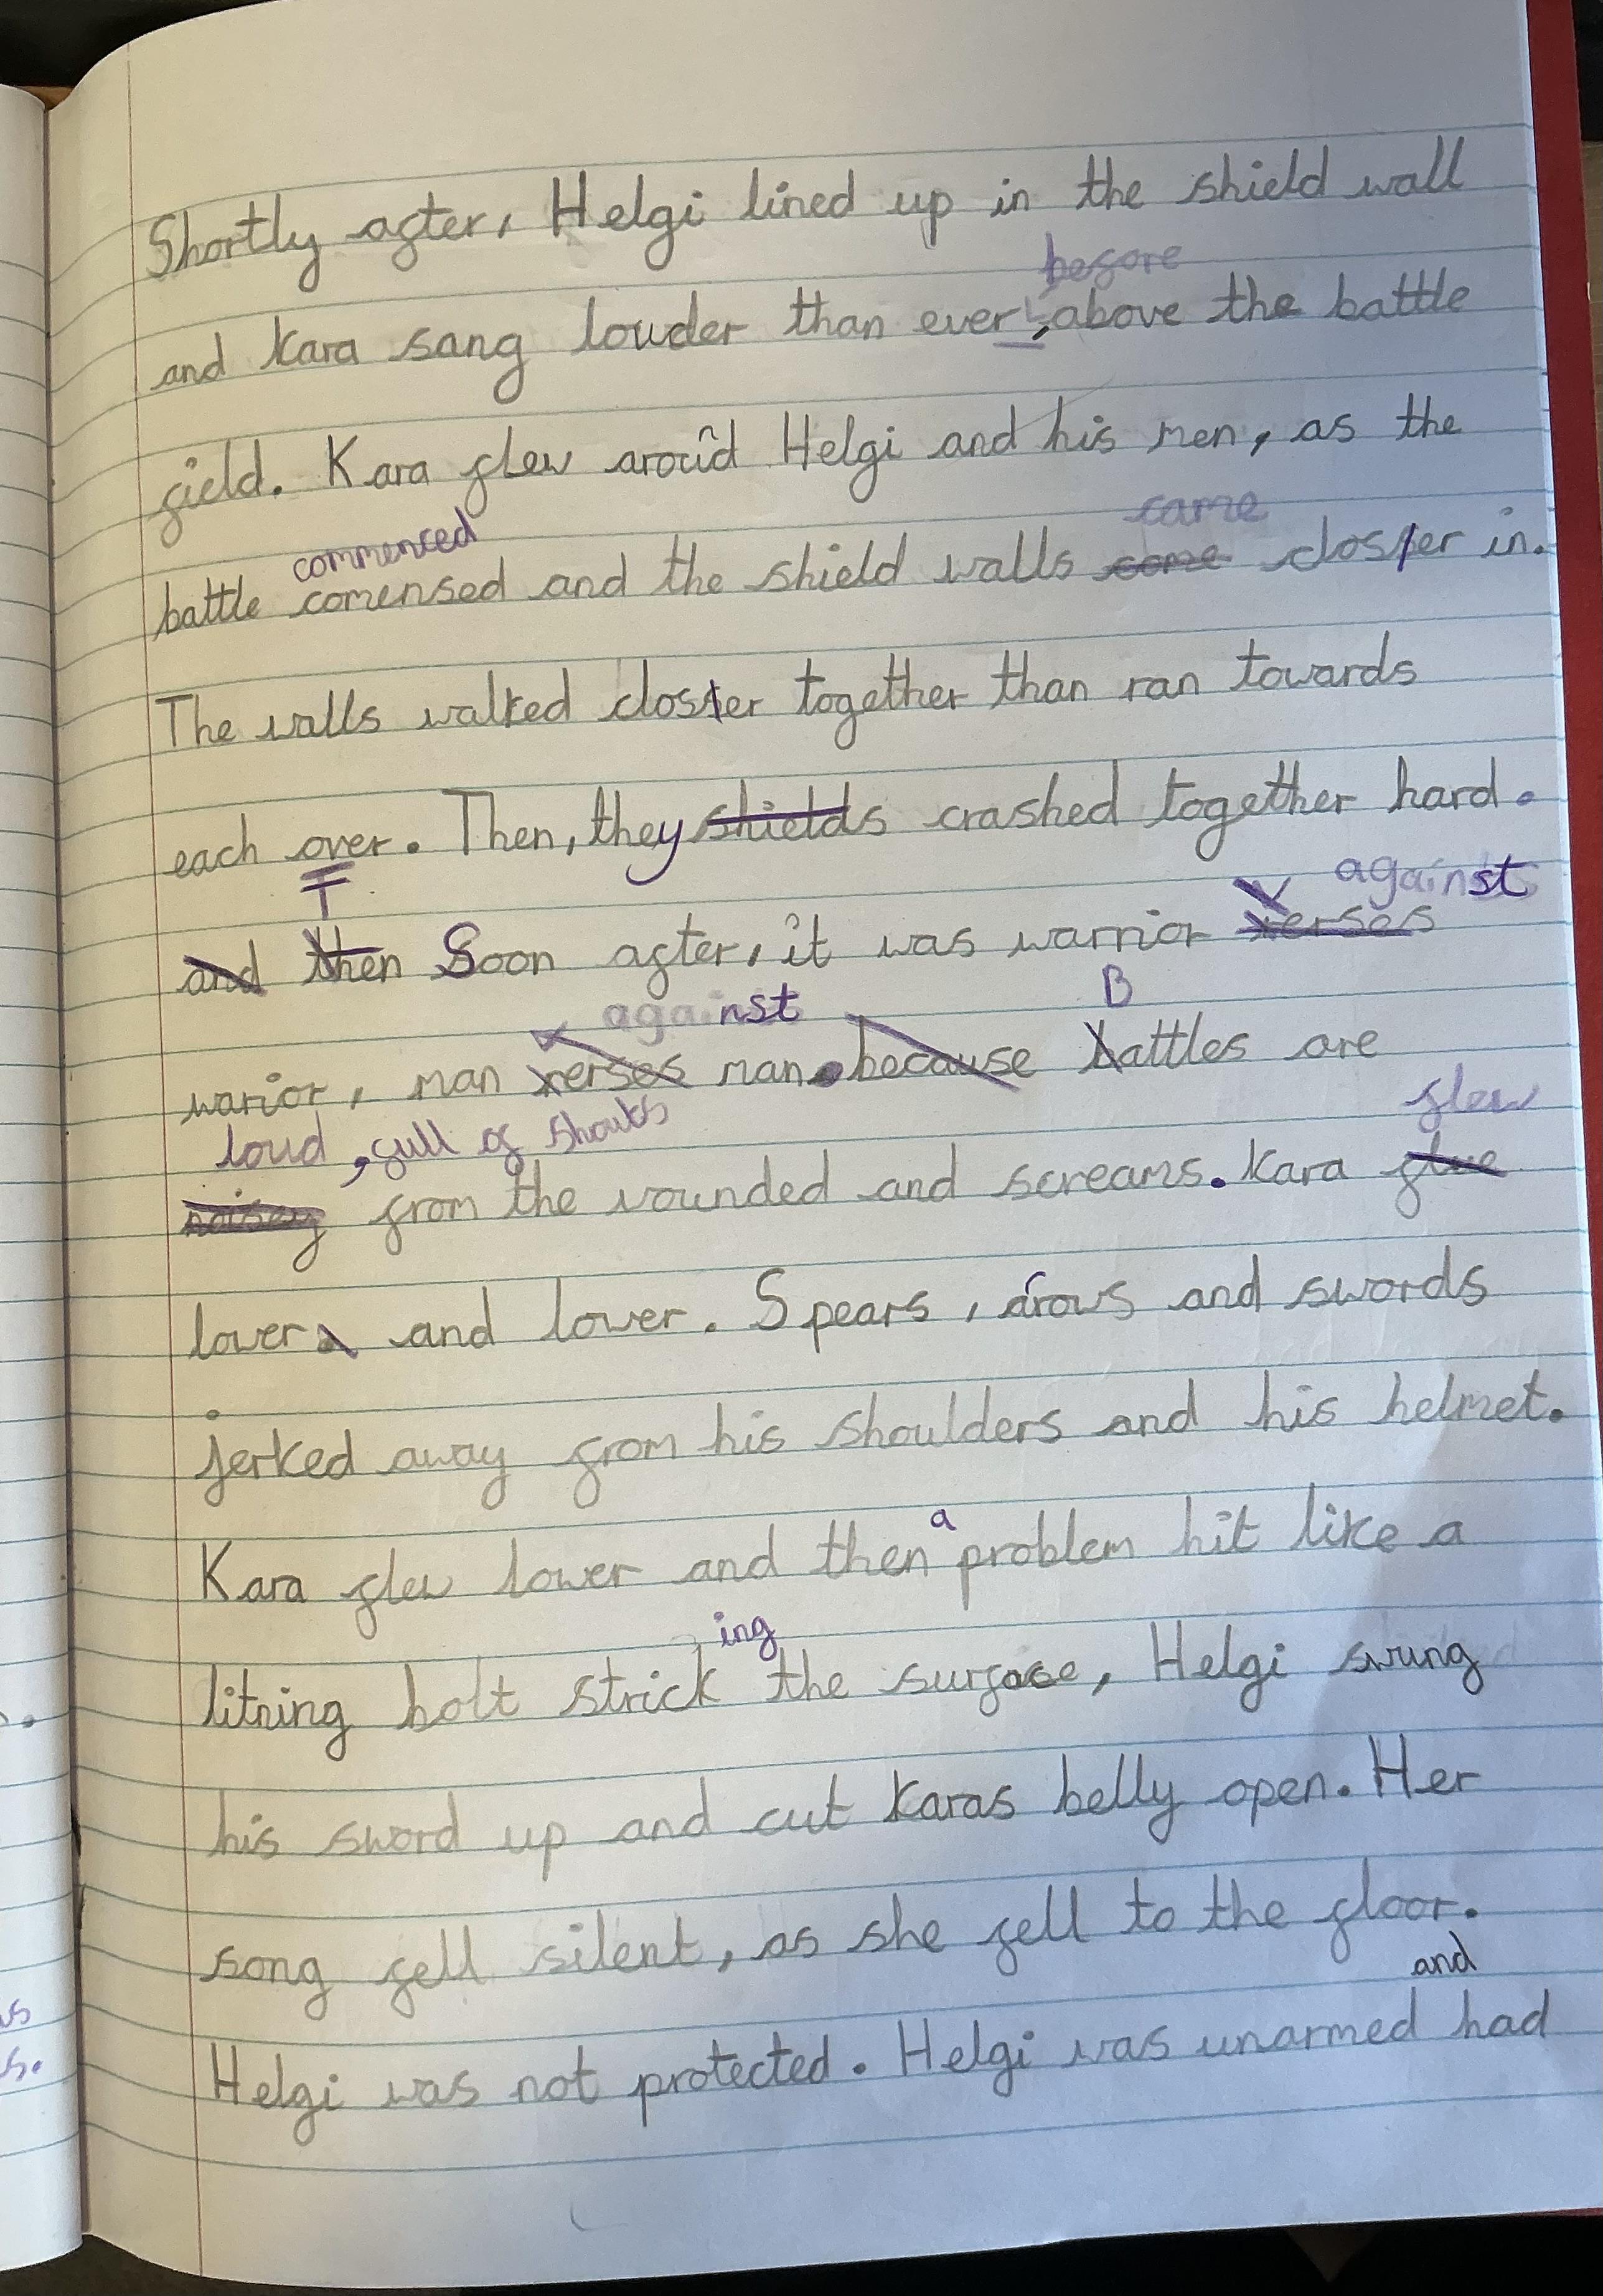 Shortly after, Helgi lined up in the shield wall
before
and Kara sang louder than ever, above the battle
field. Kara flew around Helgi and his men, as the
commenced came
battle comensed and the shield walls come closter in.
The walls walked closter together than ran towards
each over. Then, they shields crashed together hard.
T V against
and then Soon after, it was warrior verses
against B
warior, man verses man. because battles are
loud, full of shouts flew
noisey from the wounded and screams. Kara flue
lower and lower. Spears, arrows and swords
jerked away from his shoulders and his helmet.
a
Kara flew lower and then problem hit like a
ing
litning bolt strick the surface, Helgi swung
his sword up and cut Karas belly open. Her
song fell silent, as she fell to the floor.
and
Helgi was not protected. Helgi was unarmed had